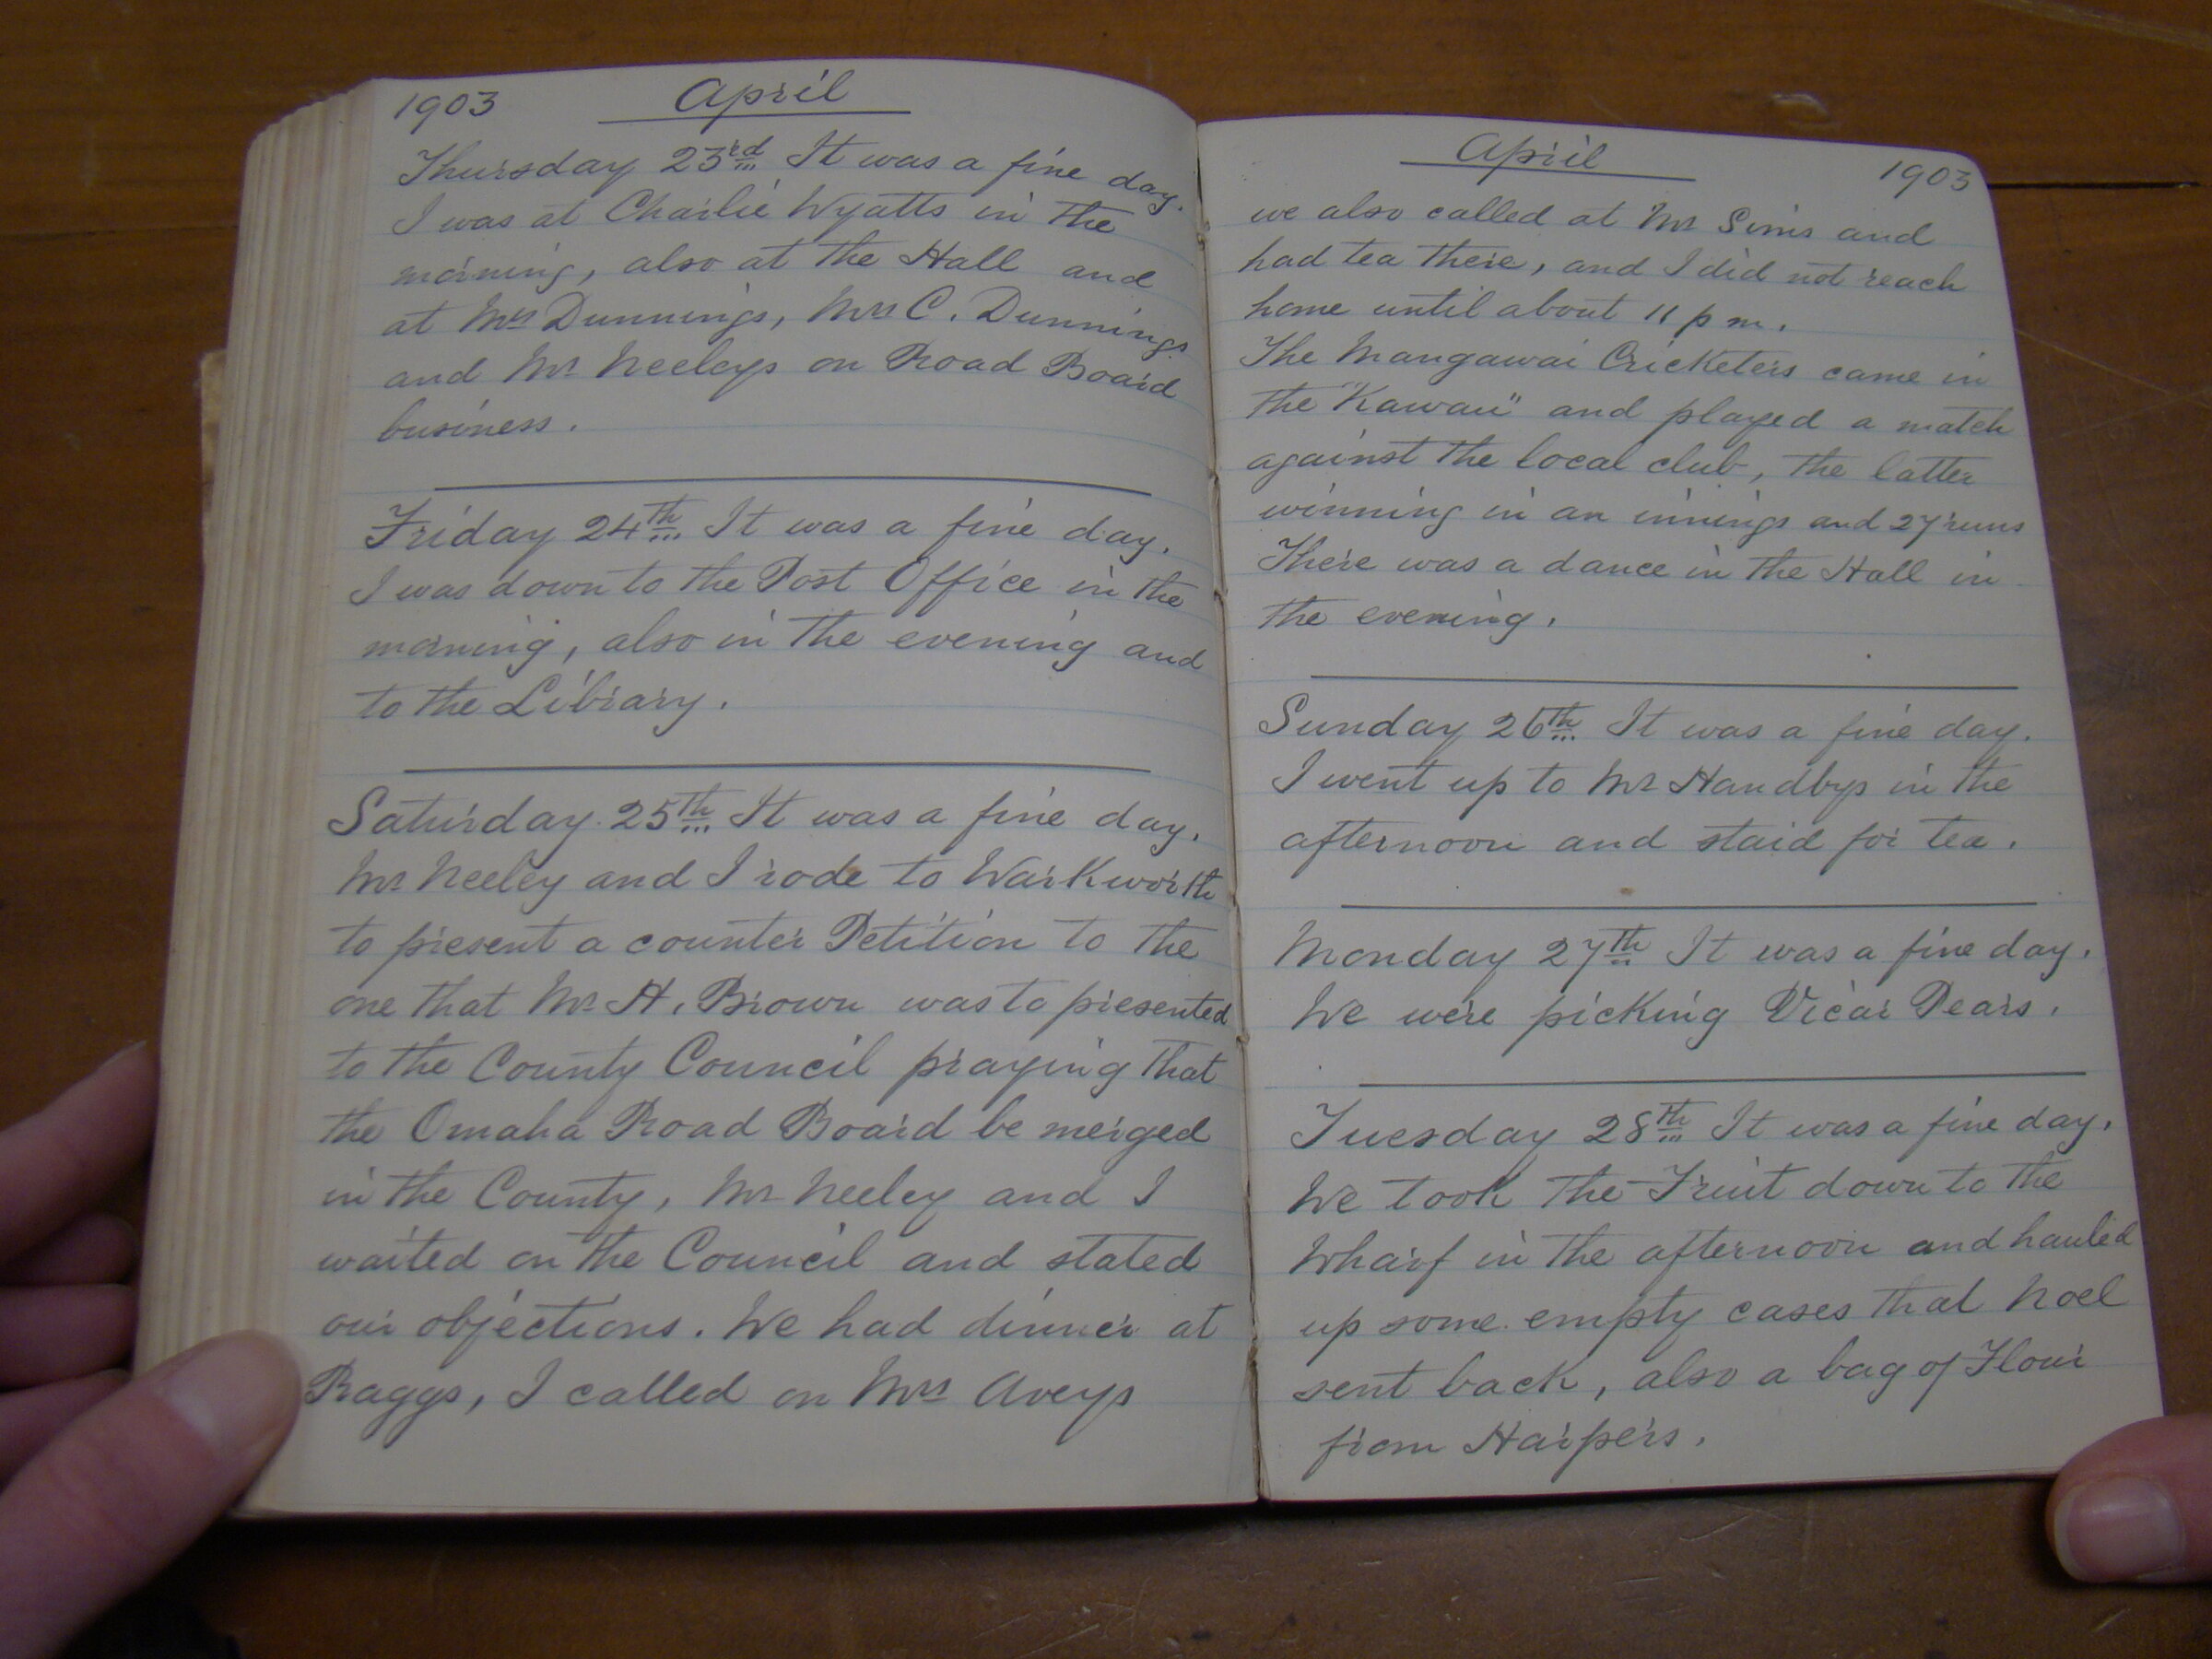 1903 April
Thursday 23rd It was a fine day.
I was at Charlie Wyatts in the
morning, also at the Hall and
at Mrs Dunnings, Mrs C. Dunnings
and Mr Neeleys on Road Board
business.
Friday 24th It was a fine day.
I was down to the Post Office in the
morning, also in the evening and
to the Library.
Saturday 25th It was a fine day.
Mr Neeley and I rode to Warkworth
to present a counter Petition to the
one that Mr H. Brown was to presented
to the County Council praying that
the Omaha Road Board be merged
in the County, Mr Neeley and I
waited on the Council and stated
our objections. We had dinner at
Raggs, I called on Mrs Averys
April 1903
we also called at Mr Sims and
had tea there, and I did not reach
home until about 11 pm.
The Mangawai Cricketers came in
the "Kawau" and played a match
against the local club, the latter
winning in an innings and 27 runs
There was a dance in the Hall in
the evening.
Sunday 26th It was a fine day.
I went up to Mr Handbys in the
afternoon and staid for tea.
Monday 27th It was a fine day.
We were picking Vicar Pears.
Tuesday 28th It was a fine day.
We took the Fruit down to the
Wharf in the afternoon and hauled
up some empty cases that Noel
sent back, also a bag of Flour
from Harpers.